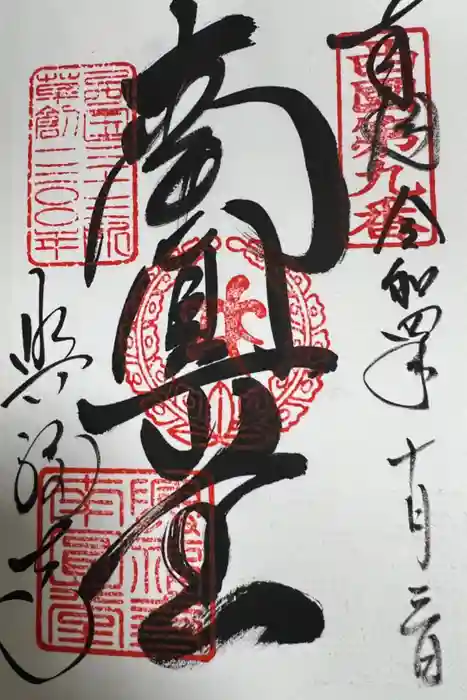 西国第九番
奉拝
令和四年
十月三日
南圓堂
西国三十三所
草創一三〇〇年
興福寺